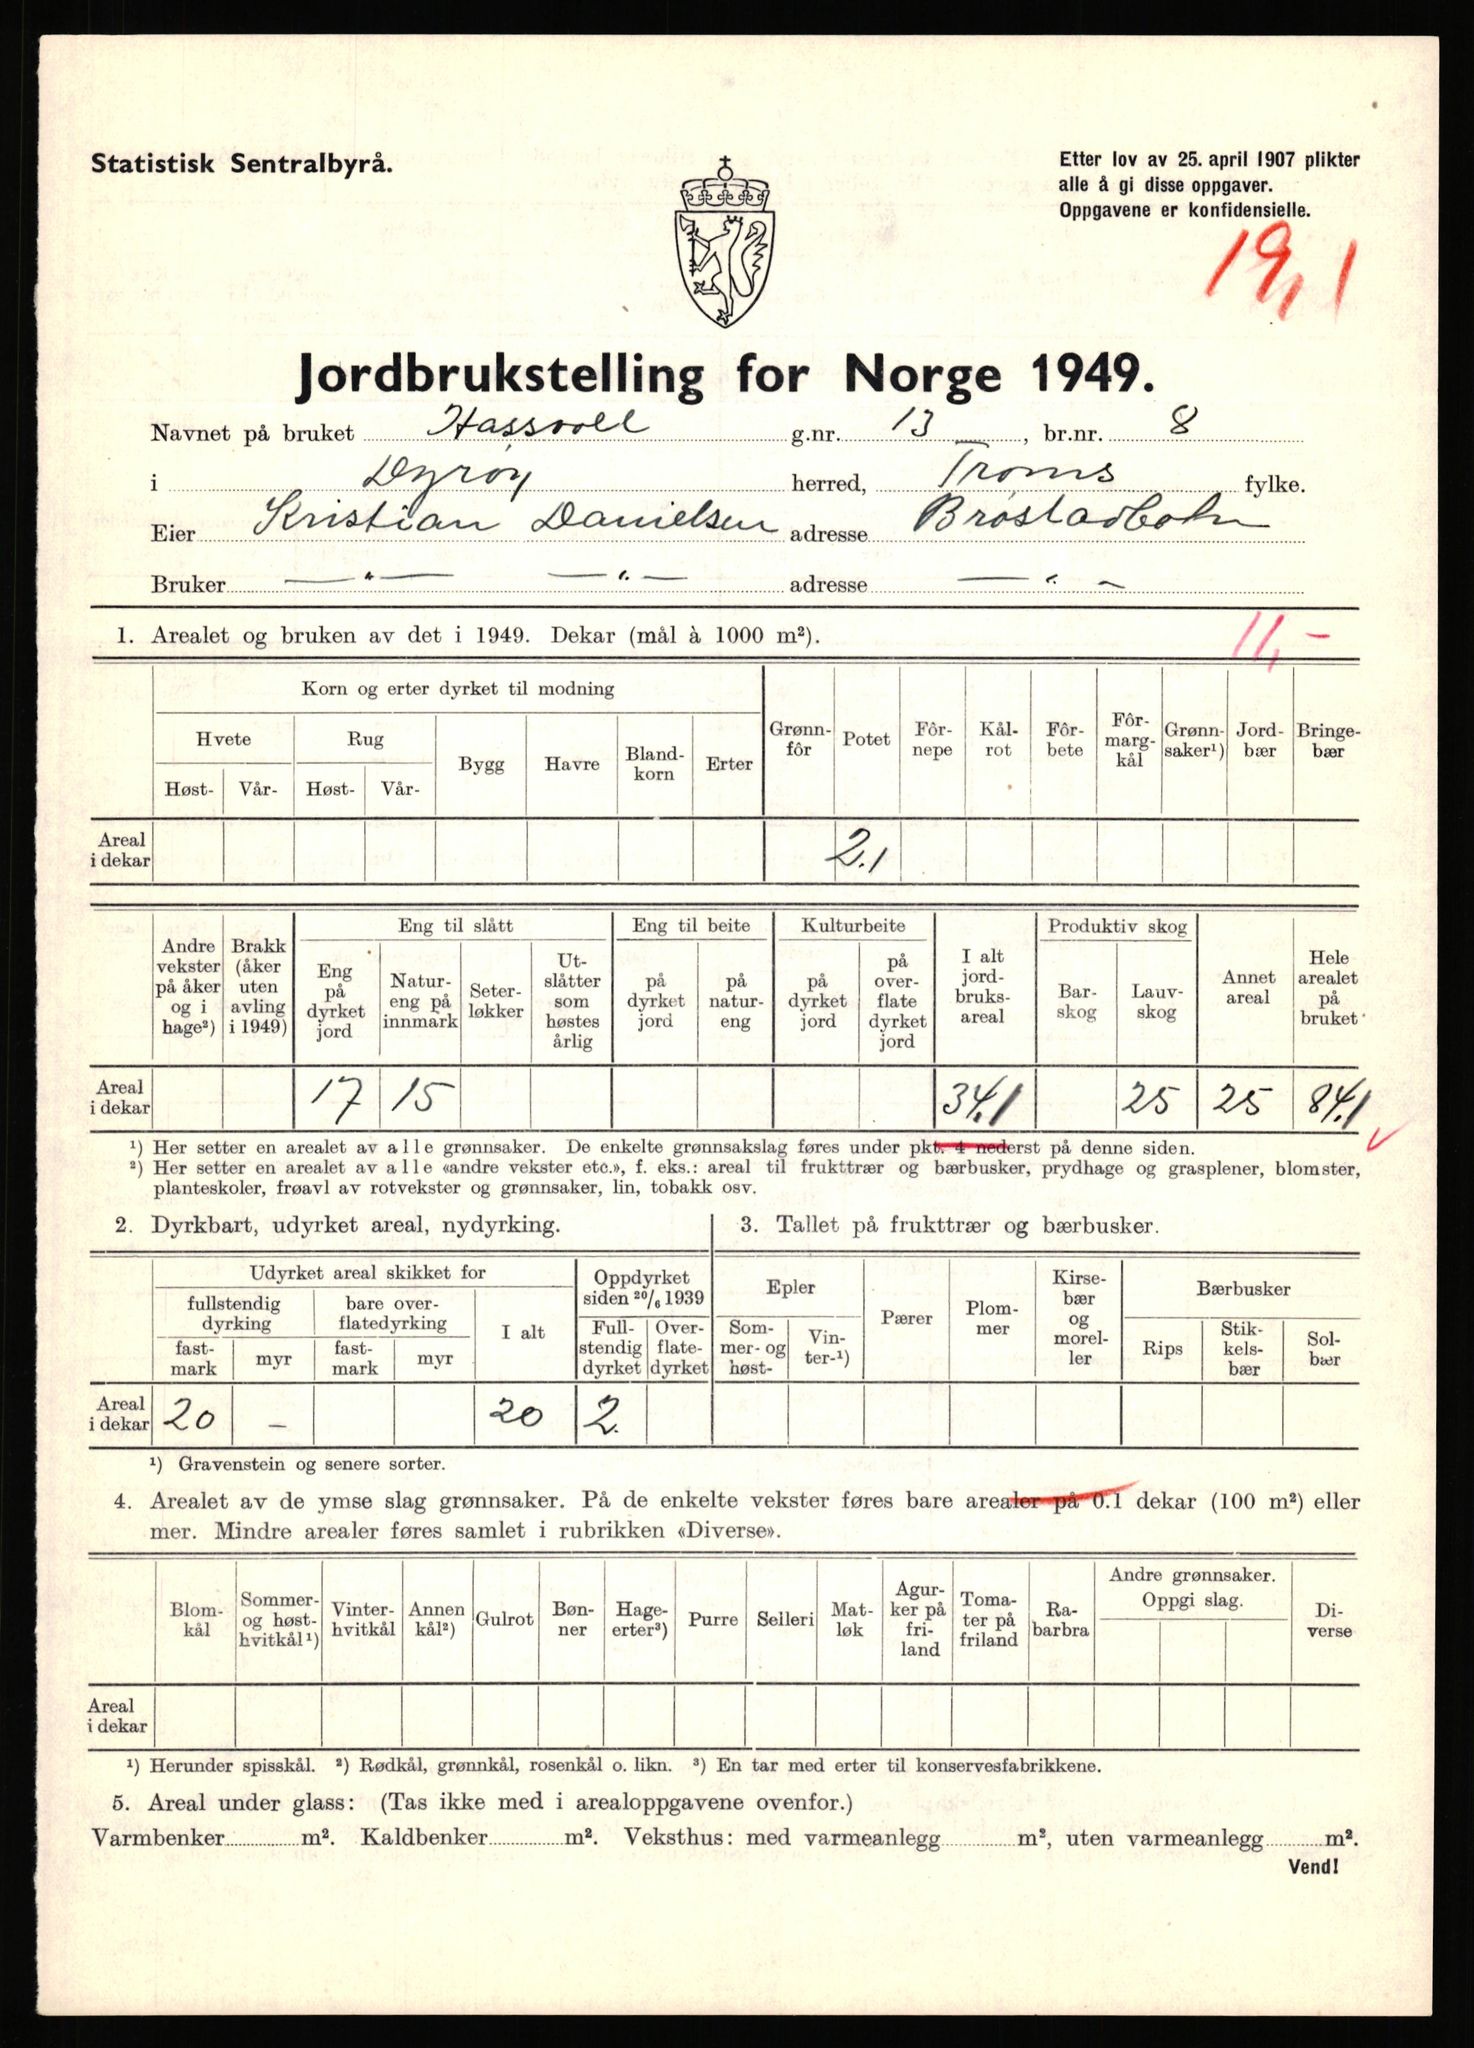 Statistisk Sentralbyrå.
Etter lov av 25. april 1907 plikter
alle å gi disse oppgaver.
Oppgavene er konfidensielle.
19,1
Jordbrukstelling for Norge 1949.
Navnet på bruket Hassvoll g.nr. 13, br.nr. 8
i Dyrøy herred, Troms fylke.
Eier Kristian Danielsen adresse Brøstadbotn
Bruker —"— —"— adresse —"—
1. Arealet og bruken av det i 1949. Dekar (mål à 1000 m²).
11,-
Korn og erter dyrket til modning
Hvete Rug Bygg Havre Bland-korn Erter Grønn-fôr Potet Fôr-nepe Kål-rot Fôr-bete Fôr-marg-kål Grønn-saker¹) Jord-bær Bringe-bær
Høst- Vår- Høst- Vår-
Areal i dekar 2.1
Andre vekster på åker og i hage²) Brakk (åker uten avling i 1949) Eng til slått Eng til beite Kulturbeite I alt jord-bruks-areal Produktiv skog Annet areal Hele arealet på bruket
Eng på dyrket jord Natur-eng på innmark Seter-løkker Ut-slåtter som høstes årlig på dyrket jord på natur-eng på dyrket jord på over-flate dyrket jord Bar-skog Lauv-skog
Areal i dekar 17 15 34,1 25 25 84,1
¹) Her setter en arealet av alle grønnsaker. De enkelte grønnsakslag føres under pkt. 4 nederst på denne siden.
²) Her setter en arealet av alle «andre vekster etc.», f. eks.: areal til frukttrær og bærbusker, prydhage og grasplener, blomster,
planteskoler, frøavl av rotvekster og grønnsaker, lin, tobakk osv.
2. Dyrkbart, udyrket areal, nydyrking.
Udyrket areal skikket for Oppdyrket siden 20/6 1939
fullstendig dyrking bare over-flatedyrking I alt Full-stendig dyrket Over-flate-dyrket
fast-mark myr fast-mark myr
Areal i dekar 20 – 20 2.
3. Tallet på frukttrær og bærbusker.
Epler Pærer Plom-mer Kirse-bær og morel-ler Bærbusker
Som-mer- og høst- Vin-ter-¹) Rips Stik-kels-bær Sol-bær
¹) Gravenstein og senere sorter.
4. Arealet av de ymse slag grønnsaker. På de enkelte vekster føres bare arealer på 0.1 dekar (100 m²) eller
mer. Mindre arealer føres samlet i rubrikken «Diverse».
Blom-kål Sommer- og høst-hvitkål¹) Vinter-hvitkål Annen kål²) Gulrot Bøn-ner Hage-erter³) Purre Selleri Mat-løk Agur-ker på fri-land Toma-ter på friland Ra-barbra Andre grønnsaker. Oppgi slag. Di-verse
Areal i dekar
¹) Herunder spisskål. ²) Rødkål, grønnkål, rosenkål o. likn. ³) En tar med erter til konservesfabrikkene.
5. Areal under glass: (Tas ikke med i arealoppgavene ovenfor.)
Varmbenker m². Kaldbenker m². Veksthus: med varmeanlegg m², uten varmeanlegg m².
Vend!